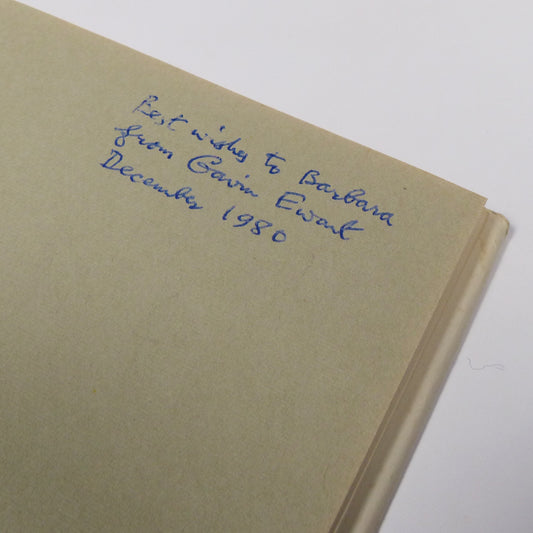 Best wishes to Barbara
from Gavin Ewart
December 1980